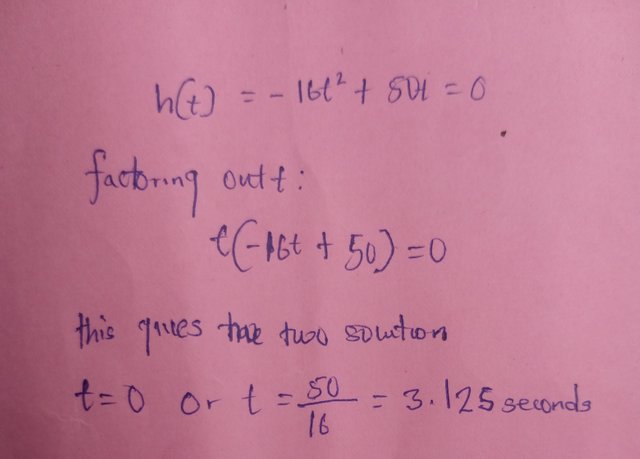 h(t) = -16t² + 50t = 0
factoring out t:
t(-16t + 50) = 0
this gives two solution
t=0 or t = 50/16 = 3.125 seconds